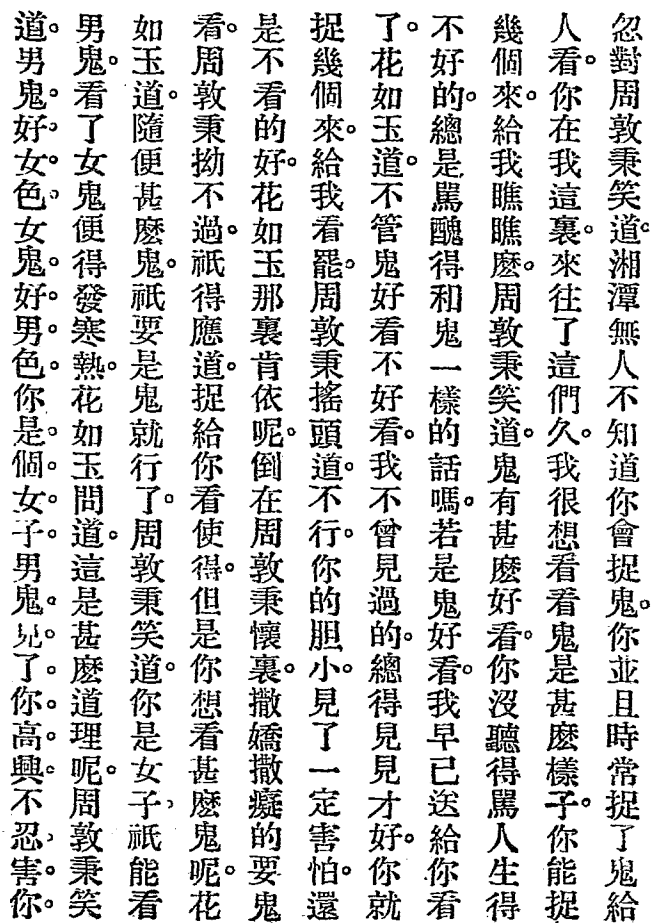 忽對周敦秉笑道。湘潭無人不知道你會捉鬼。你並且時常捉了鬼給
人看。你在我這裏。來往了這們久。我很想看看鬼是甚麽樣子。你能捉
幾個來。給我瞧瞧麽。周敦秉笑道。鬼有甚麽好看。你沒聽得罵人生得
不好的。總是罵醜得和鬼一樣的話嗎。若是鬼好看。我早已送給你看
了。花如玉道。不管鬼好看不好看。我不曾見過的。總得見見才好。你就
捉幾個來。給我看罷。周敦秉搖頭道。不行。你的胆小。見了一定害怕。還
是不看的好。花如玉那裏肯依呢。倒在周敦秉懷裏。撒嬌撒癡的要鬼
看。周敦秉拗不過。祇得應道。捉給你看使得。但是你想看甚麽鬼呢。花
如玉道。隨便甚麽鬼。祇要是鬼就行了。周敦秉笑道。你是女子,祇能看
男鬼。看了女鬼便得發寒熱。花如玉問道。這是甚麽道理呢。周敦秉笑
道。男鬼好女色。女鬼好男色。你是個女子。男鬼見了你。高興不忍害你。